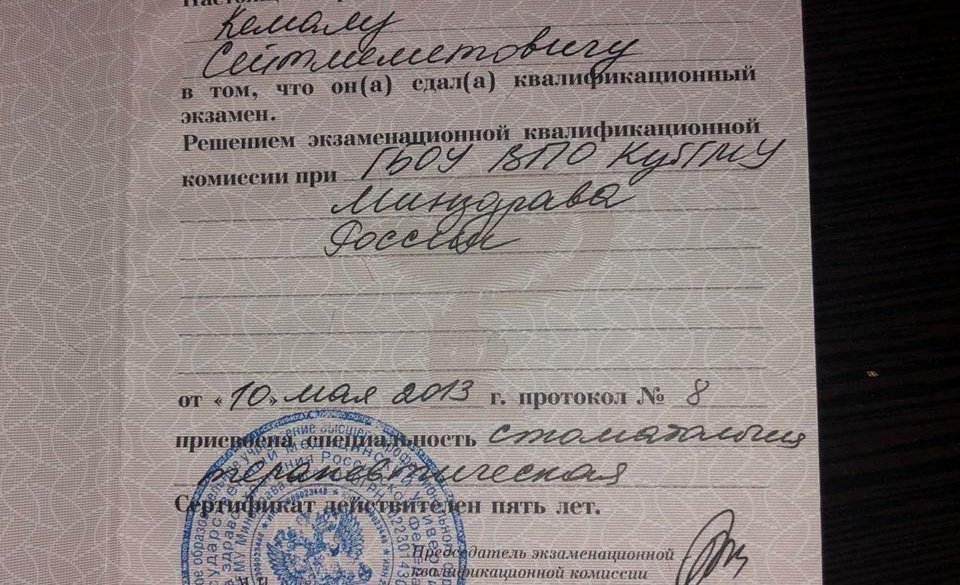 Кемалу
Сейтмеметовичу
в том, что он(а) сдал(а) квалификационный
экзамен.
Решением экзаменационной квалификационной
комиссии при ГБОУ ВПО КубГМУ
Минздрава
России
от «10» мая 2013 г. протокол № 8
присвоена специальность стоматология
терапевтическая
Сертификат действителен пять лет.
Председатель экзаменационной
квалификационной комиссии